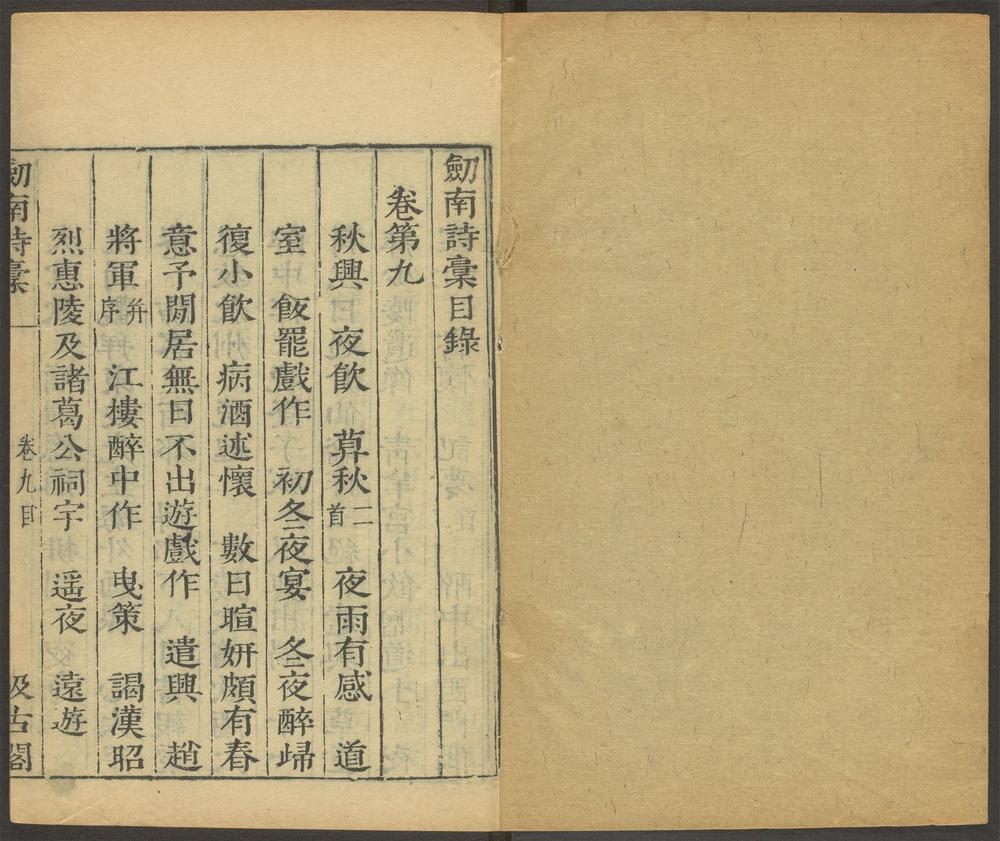 劒南詩稾目錄
卷第九
秋興　夜飲　草秋二首　夜雨有感　道
室　飯罷戲作　初冬夜宴　冬夜醉歸
復小飲　病酒述懷　數日暄妍頗有春
意予閒居無日不出遊戲作　遣興　趙
將軍并序　江樓醉中作　曳策　謁漢昭
烈惠陵及諸葛公祠宇　遥夜　遠遊
劒南詩稾　卷九目　汲古閣